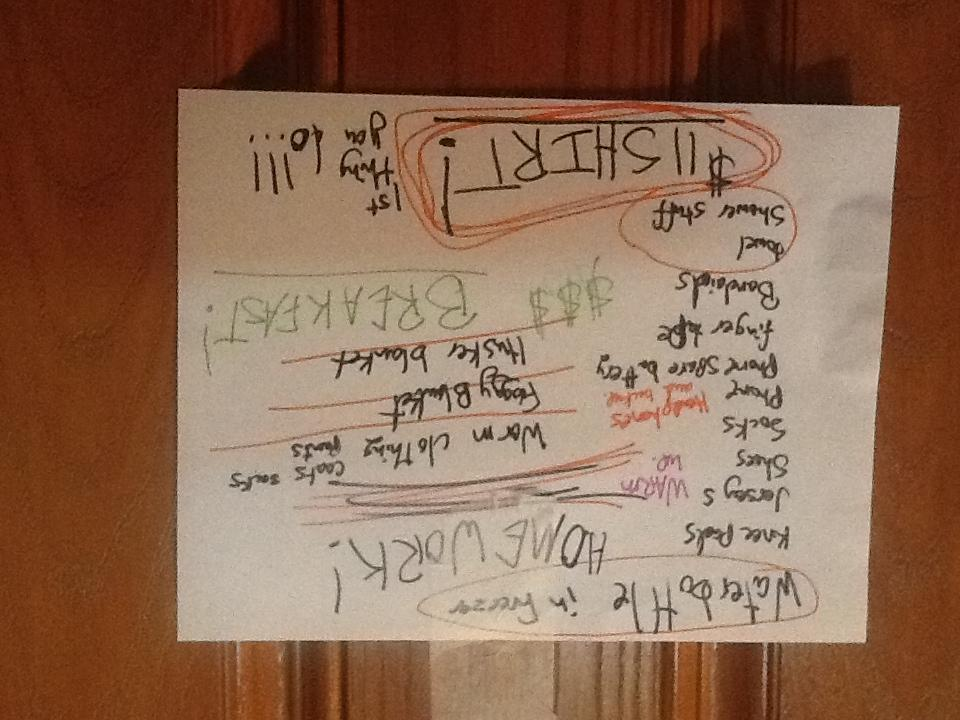 Waterbottle in freezer
HOMEWORK!
Knee Pads
Jerseys
WARM
UP.
Shoes
Socks
Phone
Headphones
and
Phone spare battery
finger tape
Bandaids
towel
Shower stuff
coats socks
pants
Warm clothing
Foggy Blanket
Husker blanket
$$$ BREAKFAST!
$11 SHIRT!
1st
thing
you do...!!!